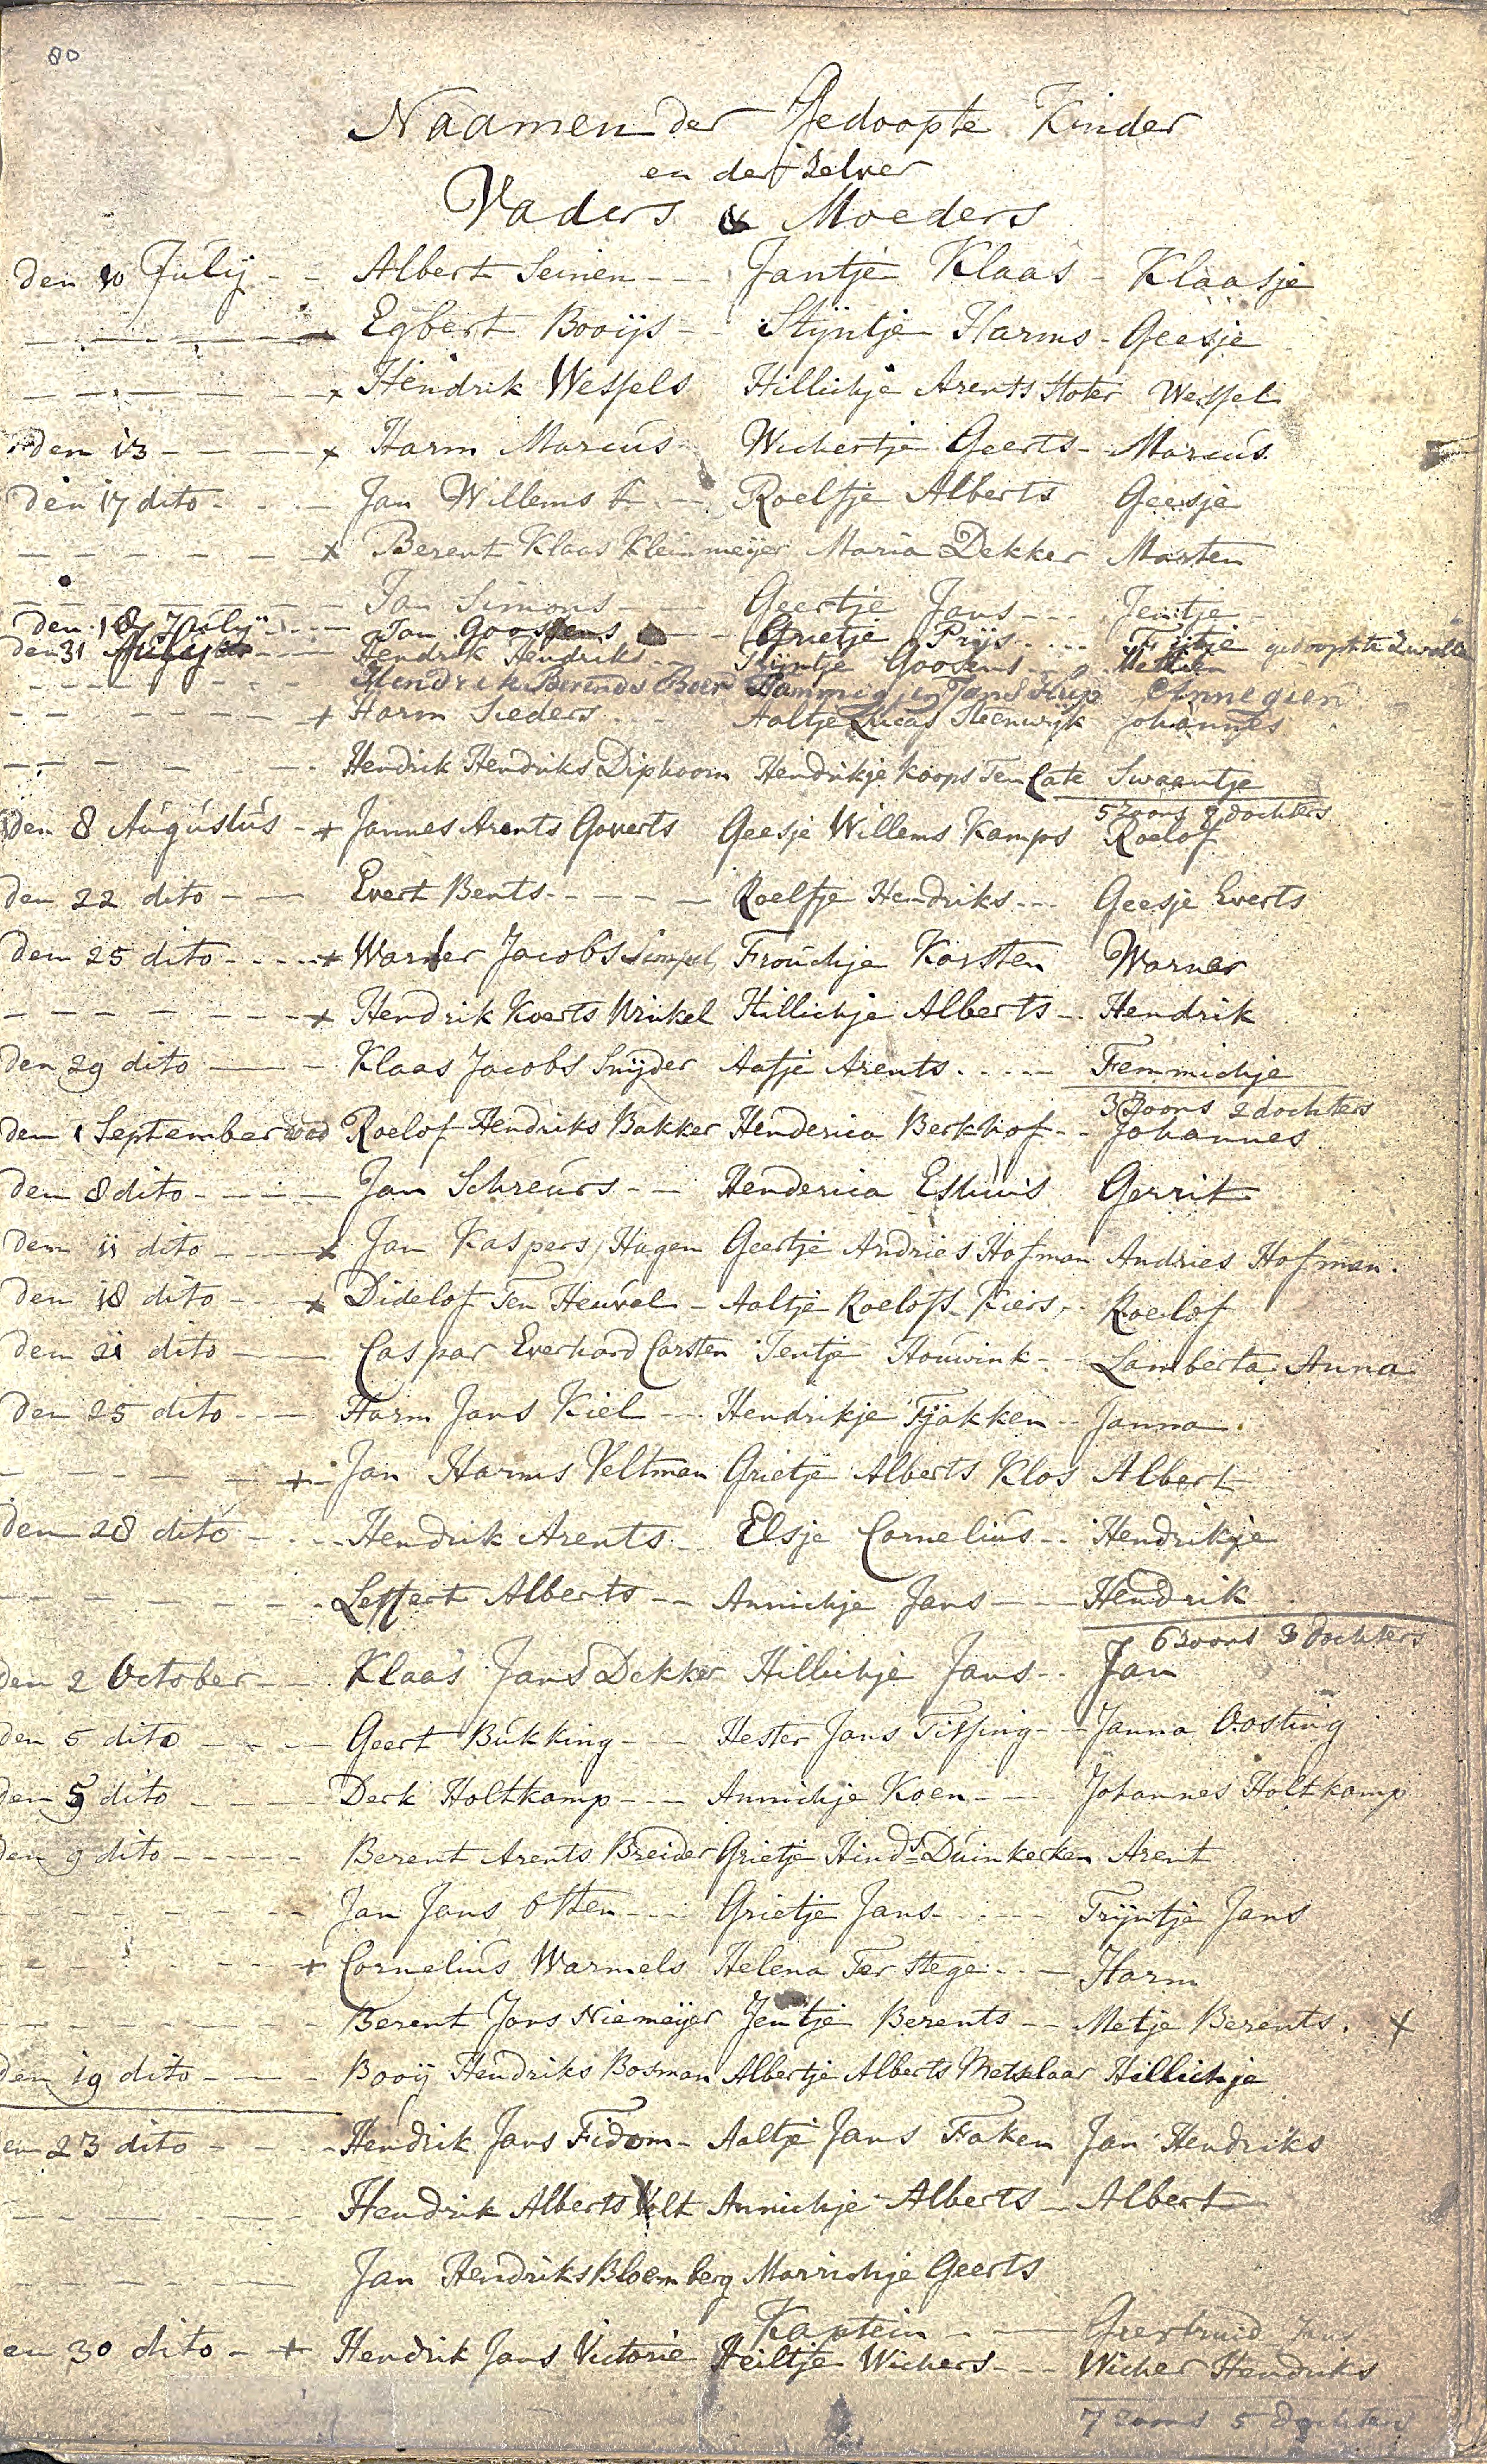 80
Naamen der Gedoopte Kinder
en der zelver
Vaders & Moeders
den 10 Julij - - Albert Seinen - - - Jantje Klaas - Klaasje
- - - - - Egbert Booijs - - Stijntje Harms - Geesje
- - - - - x Hendrik Wessels Hillichje Arents Stoter Wessel
den 13 - - - - x Harm Marcus - Wichertje Geerts - Marcus
den 17 dito - - - - Jan Willems - - Roelfje Alberts Geesje
- - - - - - x Berent Klaas Kleinmeijer Maria Dekker Marten
- - - - - - Jan Simons - - - Geertje Jans - - - Jentje
den 18 Julij - - - Jan Goossens - - Grietje Prijs - - - Fijtje gedoopt te Zwolle
den 31 - - - Hendrik Hendriks - - Stijntje Goosens - - -
- - - - - - Hendrik Berends Boer Hammigjen Jans Annegien
- - - - - - + Harm Sieders - - - Aaltje Lucas Steenwijk Johannes
- - - - - - Hendrik Hendriks Diphoorn Hendrikje Koops Ten Cate Swaantje
5 Zoons 8 dochters
den 8 Augustus - + Jannes Arents Goverts Geesje Willems Kamps Roelof
den 22 dito - - Evert Bents - - - - - Roelfje Hendriks - - - Geesje Everts
den 25 dito - - - - + Warner Jacobs Simpel Froukje Karsten Warner
- - - - - - - + Hendrik Koerts Winkel Hillichje Alberts - - Hendrik
den 29 dito - - - Klaas Jacobs Snijder Aafje Arents - - - - - Femmichje
3 Zoons 2 dochters
den 1 September Roelof Hendriks Bakker Henderica Berkhof - - Johannes
den 8 dito - - - - - Jan Schreurs - - Henderica Eshuis Gerrit
den 11 dito - - - x Jan Kaspers Hagen Geertje Andries Hofman Andries Hofman.
den 18 dito - - - x Didelof Ten Heuvel - Aaltje Roelofs Kiers - - Roelof
den 21 dito - - - Caspar Everhard Carsten Jentje Houwink - - Lamberta Anna
den 25 dito - - - Harm Jans Kiel - - - Hendrikje Tjakken - - Janna
- - - - - + - Jan Harms Veltman Grietje Alberts Klos Albert
den 28 dito - - - - Hendrik Arents - - Elsje Cornelius - - Hendrikje
- - - - - - - Leffert Alberts - - Annichje Jans - - - Hendrik
6 zoons 3 dochters
den 2 October - - Klaas Jans Dekker Hillichje Jans - - Jan
den 5 dito - - - - Geert Bukking - - - Hester Jans Tissing - - Janna Oosting
den 5 dito - - - - Derk Holtkamp - - - Annichje Koen - - - Johannes Holtkamp
den 9 dito - - - - - Berent Arents Breider Grietje Hinds Duinkerken Arent
- - - - - - - - Jan Jans Otten - - - Grietje Jans - - - - - Trijntje Jans
- - - - - - - - + Cornelius Warmels Helena Ter Stege - - - Harm
- - - - - - - - Berent Jans Niemeijer Jentje Berents - - Metje Berents. x
den 19 dito - - - - Booij Hendriks Bosman Albertje Alberts Metselaar Hillichje
en 23 dito - - - - Hendrik Jans Fidom - Aaltje Jans Faken Jan Hendriks
- - - - - - - Hendrik Alberts Volt Annichje Alberts - Albert
- - - - - - - Jan Hendriks Bloemberg Marrichje Geerts
Kaptein - - - Geertruid Jans
en 30 dito - + Hendrik Jans Victorie Heiltje Wichers - - - Wicher Hendriks
7 zoons 5 dochters